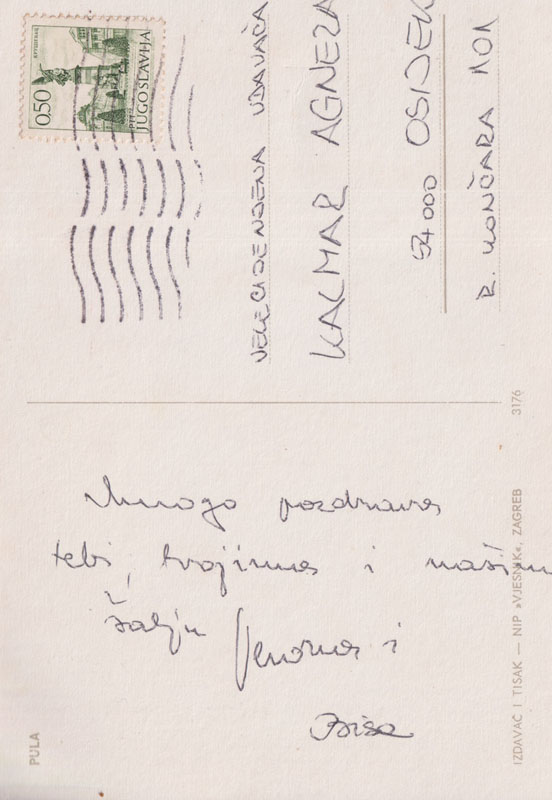 PULA
Mnogo pozdrava
tebi, tvojima i našim
šalju i
IZDAVAČ I TISAK — NIP »VJESNIK«, ZAGREB
3176
0.50
PTUJ
JUGOSLAVIJA
VELECIJENJENA UDAVAČA
KALMAR AGNEZA
54000 OSIJEK
R. KONČARA 101